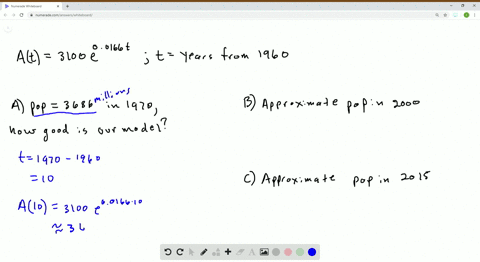 Numerade Whiteboard
numerade.com/answers/whiteboard/
A(t) = 3100 e^0.0166t ; t = years from 1960
A) pop = 3686 millions in 1970,
how good is our model?
t = 1970 - 1960
= 10
A(10) = 3100 e^0.0166·10
≈ 36
B) Approximate pop in 2000
C) Approximate pop in 2015